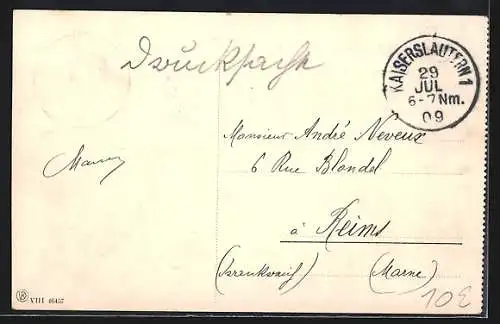 Drucksache
KAISERSLAUTERN 1
29
JUL
6-7 Nm.
09
Monsieur André Neveux
6 Rue Blondel
à Reims
(Frankreich) (Marne)
VIII 46457
10E